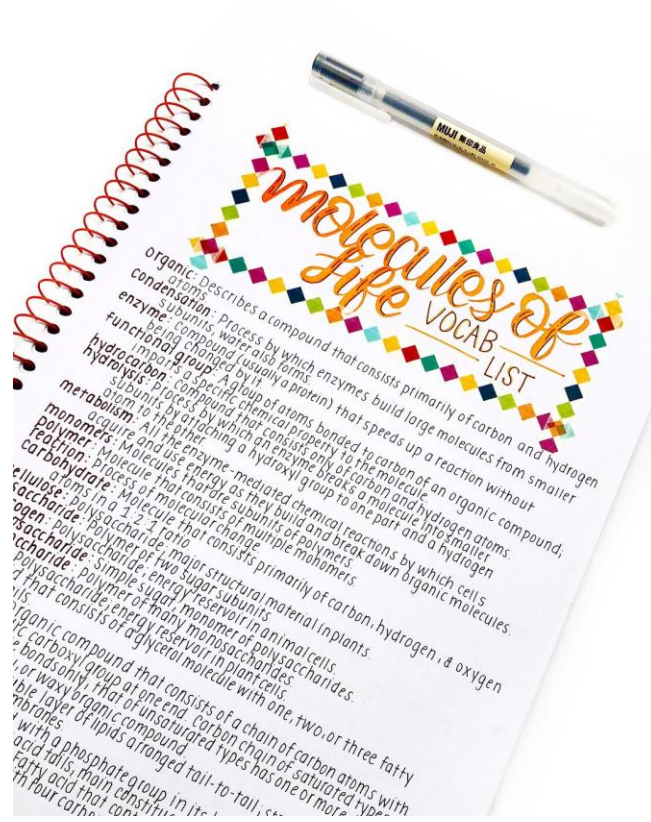 MUJI 無印良品
molecules of
life VOCAB
LIST
organic: Describes a compound that consists primarily of carbon and hydrogen
atoms
condensation: Process by which enzymes build large molecules from smaller
subunits; water also forms.
enzyme: compound (usually a protein) that speeds up a reaction without
being changed by it.
functional group: A group of atoms bonded to carbon of an organic compound;
imparts a specific chemical property to the molecule.
hydrocarbon: Compound that consists only of carbon and hydrogen atoms.
hydrolysis: Process by which an enzyme breaks a molecule into smaller
subunits by attaching a hydroxyl group to one part and a hydrogen
atom to the other
metabolism: All the enzyme-mediated chemical reactions by which cells
acquire and use energy as they build and break down organic molecules.
monomers: Molecules that are subunits of polymers.
polymer: Molecule that consists of multiple monomers.
reaction: Process of molecular change
carbohydrate: Molecule that consists primarily of carbon, hydrogen, & oxygen
atoms in a 1:2:1 ratio
ellulose: polysaccharide; major structural material in plants.
saccharide: Polymer of two sugar subunits
ogen: polysaccharide; energy reservoir in animal cells.
osaccharide: simple sugar; monomer of polysaccharides.
ccharide: polymer of many monosaccharides.
polysaccharide; energy reservoir in plant cells.
d that consists of a glycerol molecule with one, two, or three fatty
ils.
organic compound that consists of a chain of carbon atoms with
ic carboxyl group at one end. Carbon chain of saturated types
e bonds only; that of unsaturated types has one or more
, or waxy organic compound.
ble layer of lipids arranged tail-to-tail;
mbranes.
d with a phosphate group in its
acid tails; main
fatty acid that
th four